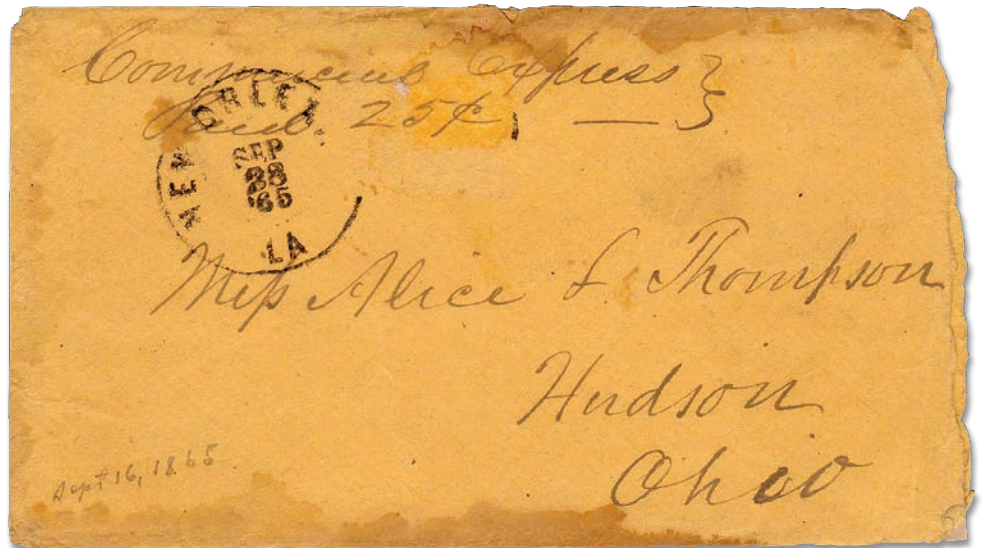 Express
Paid. 25¢
NEW ORLEA
SEP
28
'65
LA
Miss Alice L. Thompson
Hudson
Ohio
Sept 16, 1865